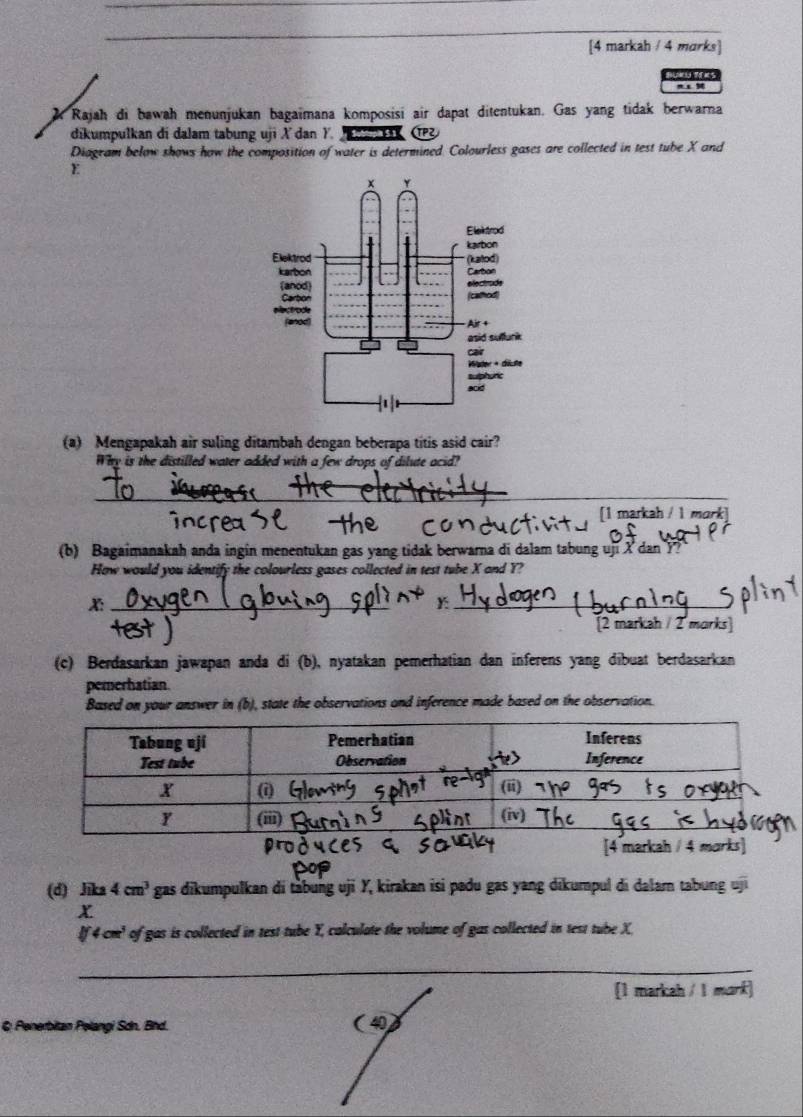 [4 markah / 4 marks]
BUKU TEKS
m.s. 98
2. Rajah di bawah menunjukan bagaimana komposisi air dapat ditentukan. Gas yang tidak berwarna
dikumpulkan di dalam tabung uji X dan Y. Subtopik 5.1 TP2
Diagram below shows how the composition of water is determined. Colourless gases are collected in test tube X and
Y.
X Y
Elektrod
karbon
(katod)
Carbon
electrode
(cathod)
Elektrod
karbon
(anod)
Carbon
electrode
(anod)
Air +
asid sulfurik
cair
Water + dilute
sulphuric
acid
(a) Mengapakah air suling ditambah dengan beberapa titis asid cair?
Why is the distilled water added with a few drops of dilute acid?
To increase the electricity
increase the conductivity of water
[1 markah / 1 mark]
(b) Bagaimanakah anda ingin menentukan gas yang tidak berwarna di dalam tabung uji X dan Y?
How would you identify the colourless gases collected in test tube X and Y?
X: Oxygen (glowing splint Y: Hydrogen (burning splint
test)
[2 markah / 2 marks]
(c) Berdasarkan jawapan anda di (b), nyatakan pemerhatian dan inferens yang dibuat berdasarkan
pemerhatian.
Based on your answer in (b), state the observations and inference made based on the observation.
Tabung uji Pemerhatian Inferens
Test tube Observation Inference
X (i) Glowing splint re-ignites (ii) The gas is oxygen
Y (iii) Burning splint (iv) The gas is hydrogen
produces a squaky
[4 markah / 4 marks]
pop
(d) Jika 4 cm³ gas dikumpulkan di tabung uji Y, kirakan isi padu gas yang dikumpul di dalam tabung uji
X.
If 4 cm³ of gas is collected in test tube Y, calculate the volume of gas collected in test tube X.
[1 markah / 1 mark]
© Penerbitan Pelangi Sdn. Bhd.
40